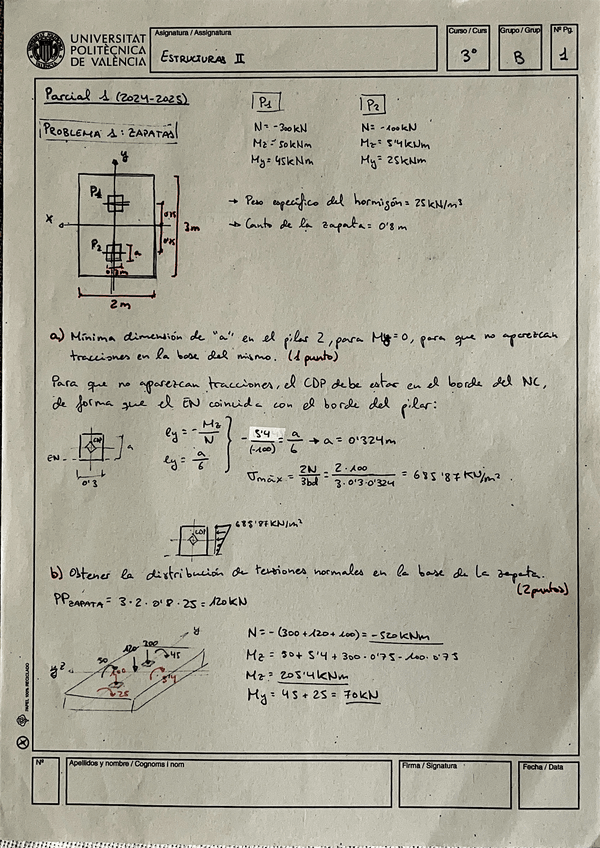 UNIVERSITAT
POLITÈCNICA
DE VALÈNCIA
Asignatura / Assignatura
ESTRUCTURAS II
Curso / Curs
3º
Grupo / Grup
B
Nº Pg.
1
Parcial 1 (2024-2025)
PROBLEMA 1: ZAPATAS
P1
N = -300kN
Mz = 50kNm
My = 45kNm
P2
N = -100kN
Mz = 5'4kNm
My = 25kNm
→ Peso específico del hormigón = 25kN/m³
→ Canto de la zapata = 0'8m
y
x
P1
P2
a
0'75
0'75
3m
0'3m
2m
a) Mínima dimensión de "a" en el pilar 2, para My=0, para que no aparezcan
tracciones en la base del mismo. (1 punto)
Para que no aparezcan tracciones, el CDP debe estar en el borde del NC,
de forma que el EN coincida con el borde del pilar:
EN
CDP
a
0'3
ey = - Mz/N
ey = a/6
- 5'4/(-100) = a/6 → a = 0'324m
σmáx = 2N/3bd = 2·100/3·0'3·0'324 = 685'87 KN/m².
CDP
685'87KN/m²
b) Obtener la distribución de tensiones normales en la base de la zapata.
(2 puntos)
PP ZAPATA = 3·2·0'8·25 = 120kN
N = -(300+120+100) = -520kNm
Mz = 50 + 5'4 + 300·0'75 - 100·0'75
Mz = 205'4kNm
My = 45 + 25 = 70kN
y
50
120
45
5'4
25
PAPEL 100% RECICLADO
Nº
Apellidos y nombre / Cognoms i nom
Firma / Signatura
Fecha / Data